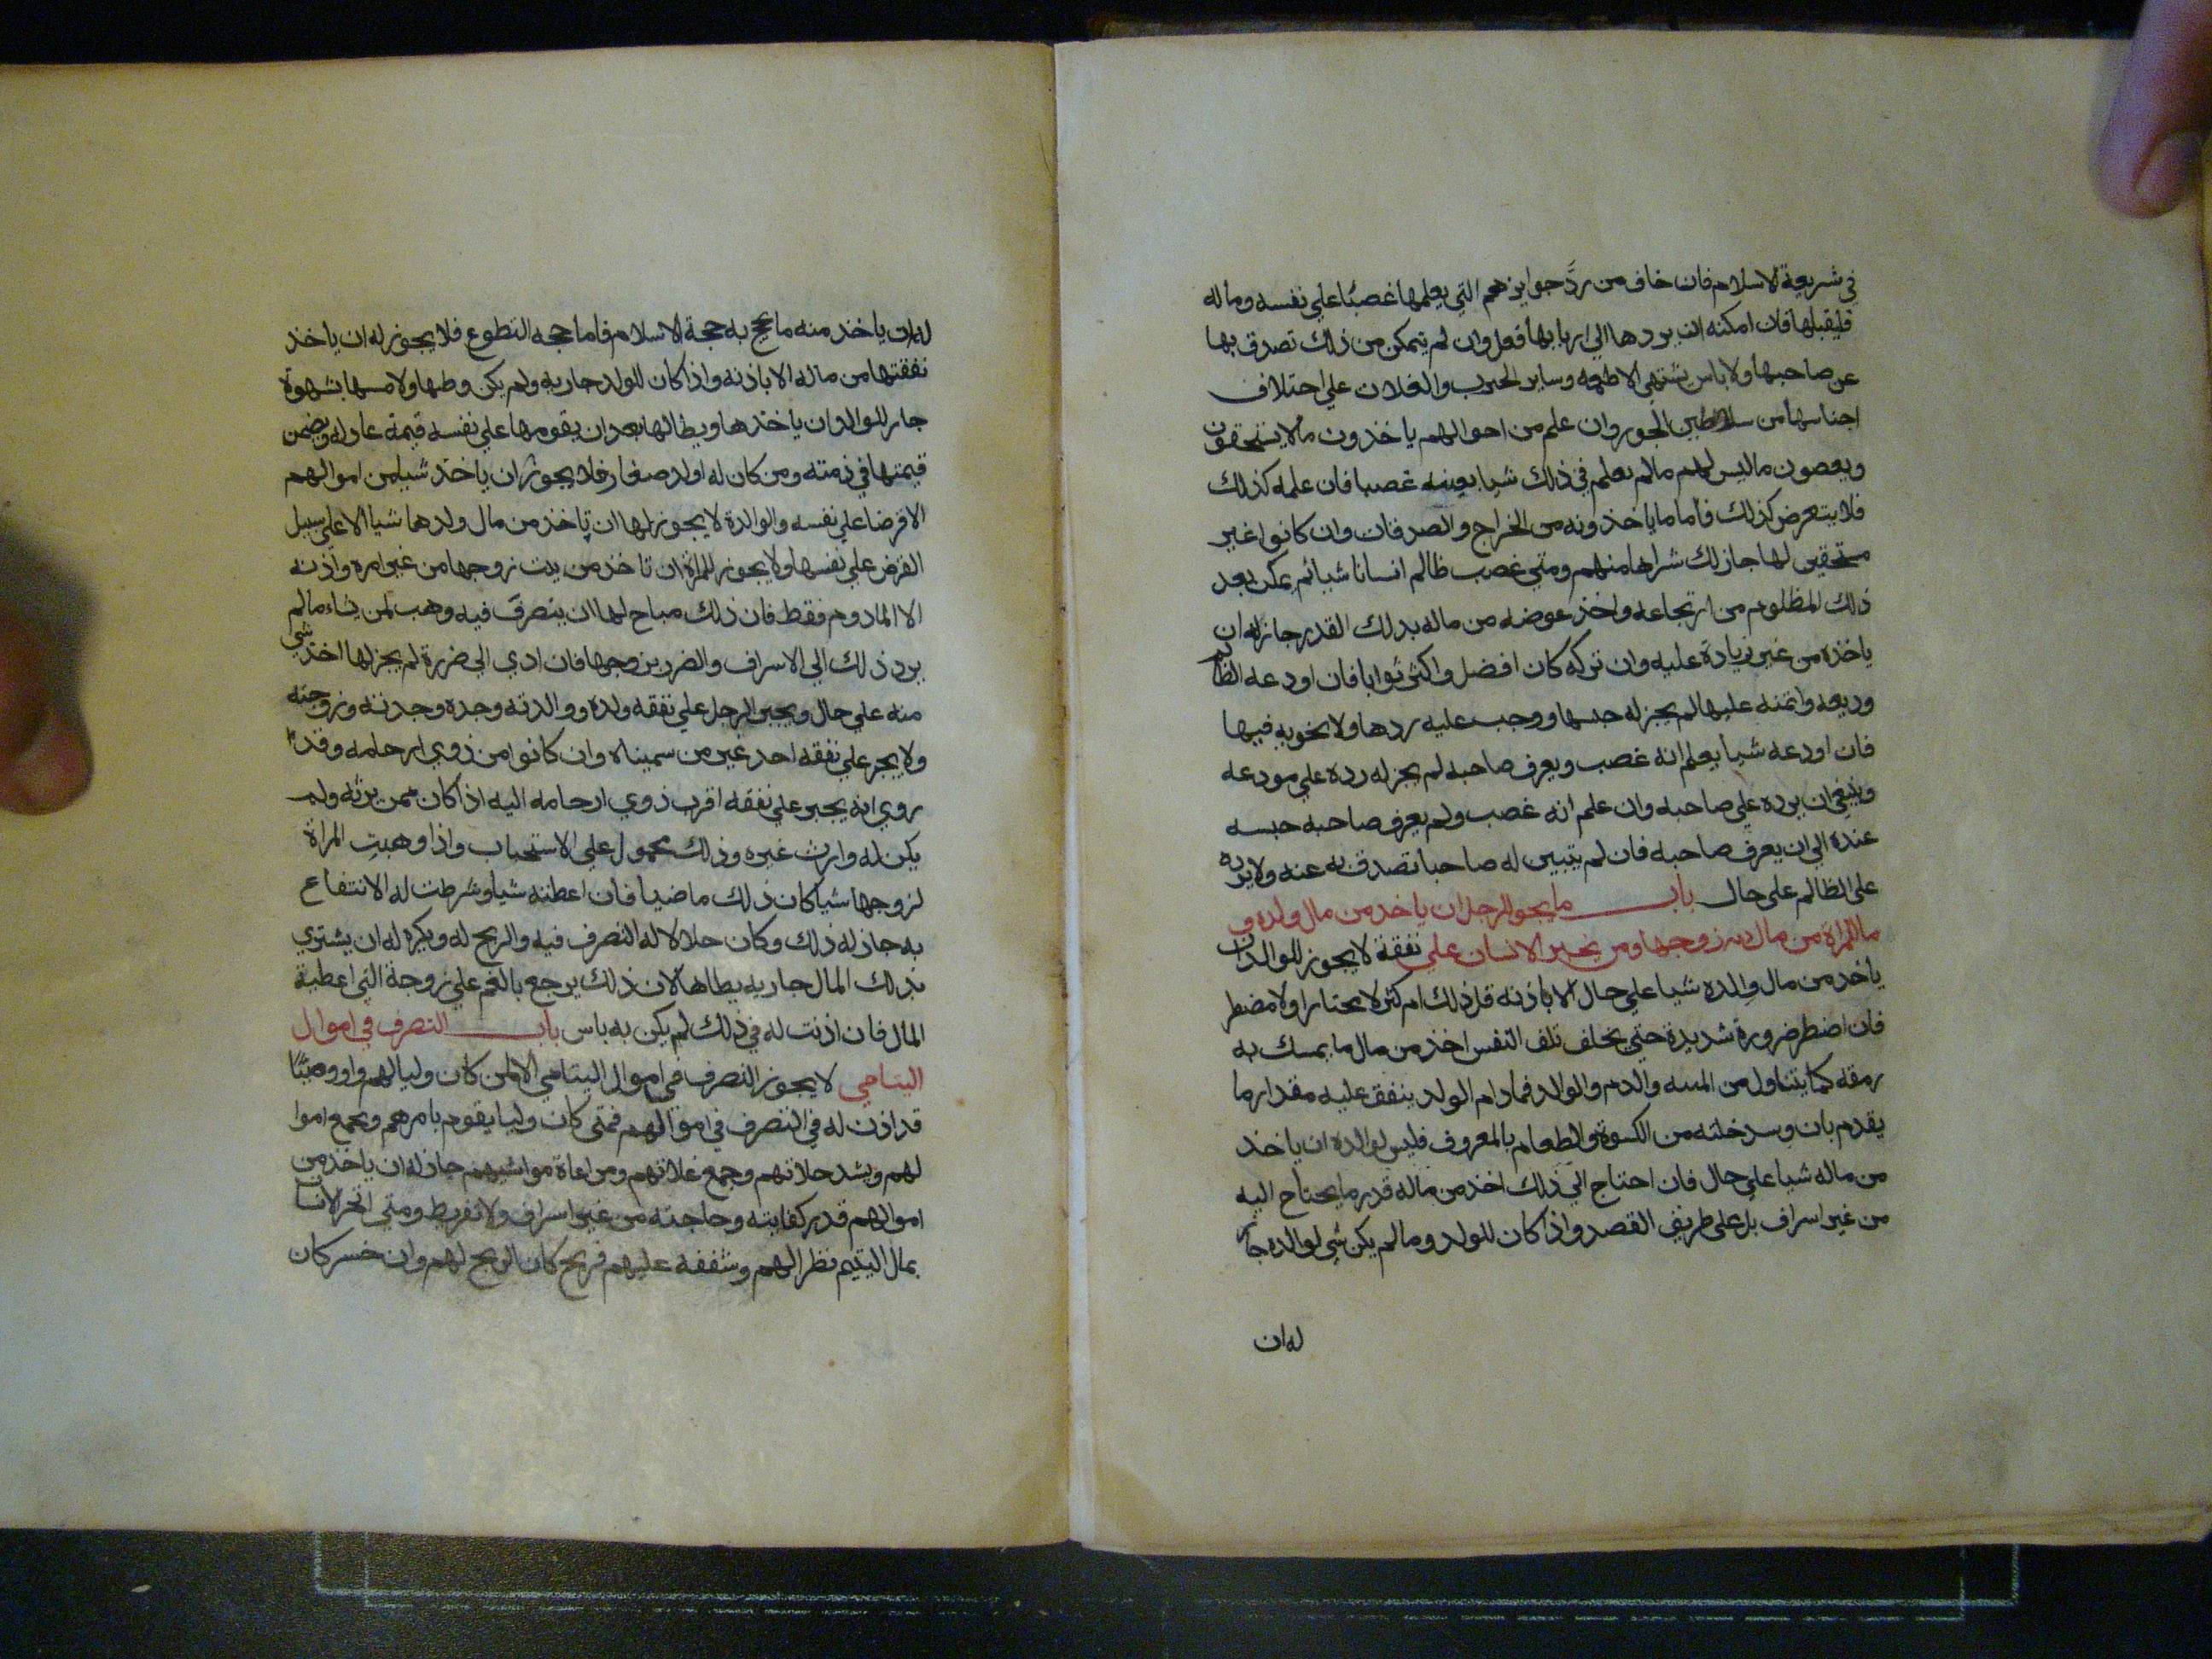 في شريعة الاسلام فان خاف من ردَّ جوايزهم التي يعلمها غصبًا علي نفسه وماله
فليقبلها فان امكنه ان يردها الي اربابها فعل وان لم يتمكن من ذلك تصدق بها
عن صاحبها ولا باس بشتري الاطعمه وساير الحبوب والغلات علي اختلاف
اجناسها من سلاطين الجور وان علم من احوالهم ياخذون مالا يستحقون
ويعصون ماليس لهم مالم يعلم في ذلك شيا بعينه غصبا فان علمه كذلك
فلا يتعرض كذلك فاما ما ياخذونه من الخراج والصدقات وان كانوا غير
مستحقين لها جاز لك شراها منهم ومتي غصب ظالم انسانا شيا ثم يمكن بعد
ذلك المظلوم من ارتجاعه واخذ عوضه من ماله بدلك القدر جاز له ان
ياخذه من غير زيادة عليه وان تركه كان افضل واكثر ثوابا فان اودعه الظالم
وديعه واتمنه عليها لم يجز له حبسها ووجب عليه ردها ولا يخوبه فيها
فان اودعه شيا يعلم انه غصب ويعرف صاحبه لم يجز له رده علي مودعه
وينبغي ان يرده علي صاحبه وان علم انه غصب ولم يعرف صاحبه حبسه
عنده الي ان يعرف صاحبه فان لم يتبين له صاحبا تصدق به عنه ولا يرده
على الظالم على حال باب ما يجو للرجل ان ياخد من مال ولده و
ما للمراة من مال زوجها ومن يخبر الانسان علي نفقة لا يجوز للوالد ان
ياخد من مال ولده شيا علي حال الا باذنه قل ذلك ام كثر لا مختارا ولا مضطر
فان اضطر ضرورة شديدة حتي يخلف تلف النفس اخذ من مال ما يمسك به
رمقه كما يتناول من الميته والدم والوالد فمادام الولد ينفق عليه مقدار ما
يقدم بان وسد خلته من الكسوة والطعام بالمعروف فليس لوالده ان ياخذ
من ماله شيا علي حال فان احتاج الي ذلك اخذ من ماله قدر ما يحتاج اليه
من غير اسراف بل على طريق القصد واذا كان للولد ومالم يكن شي لوالده جاز
له ان
له ان ياخذ منه ما يحج به حجة الاسلام فاما حجه التطوع فلا يجوز له ان ياخذ
نفقتها من ماله الا باذنه واذا كان للولد جاريه ولم يكن وطيها ولا مسها بشهوة
جار للوالد ان ياخذها ويطالها بعد ان يقومها علي نفسه قيمة عادله ويضمن
قيمتها في ذمته ومن كان له اولد صغار فلا يجوز ان ياخذ شيا من اموالهم
الا قرضا علي نفسه والوالدة لا يجوز لها ان تاخذ من مال ولدها شيا الا علي سبيل
القرض علي نفسها ولا يجوز للمراة ان تاخذ من بيت زوجها من غير امره واذنه
الا المادوم فقط فان ذلك مباح لها ان يتصرف فيه وهب لمن يشاء مالم
يرد ذلك الي الاسراف والضر بزوجها فان ادي الي ضررة لم يجز لها اخذ شي
منه علي حال ويجبر الرجل علي نفقه ولده ووالدته وجده وجدته وزوجته
ولا يجبر علي نفقه احد غير من سميناه وان كانوا من ذوي ارحامه وقد
روي انه يجبر علي نفقه اقرب ذوي ارحامه اليه اذا كان ممن يرثه ولم
يكن له وارث غيره وذلك محمول علي الاستحباب واذا وهبت المراة
لزوجها شيا كان ذلك ماضيا فان اعطته شيا وشرطت له الانتفاع
به جاز له ذلك وكان حلالا له التصرف فيه والربح له ويكره له ان يشتري
بذلك المال جاريه يطاها لان ذلك يرجع بالغم علي زوجة التي اعطية
المال فان اذنت له في ذلك لم يكن به باس باب التصرف في اموال
اليتامي لا يجوز التصرف في اموال اليتامي الا لمن كان وليا لهم او وصيًّا
قد اذن له في التصرف في اموالهم فمتى كان وليا يقوم بامرهم ويجمع اموا
لهم ويشد حلاتهم وجمع غلاتهم ومراعاة مواشيهم جاز له ان ياخذ من
اموالهم قدر كفايته وحاجته من غير اسراف ولا تفريط ومتي اتجر الانسا
بمال اليتيم نظر الهم وشفقه عليهم فربح كان الربح لهم وان خسر كان